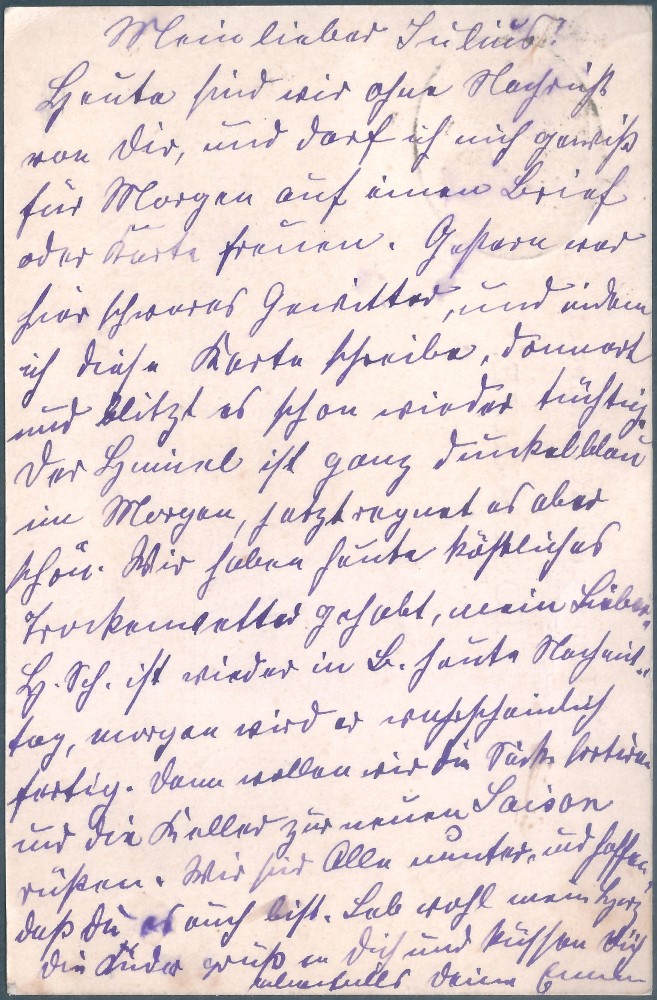 Mein lieber Julius!
Heute sind wir ohne Nachricht
von Dir, und darf ich mich gewiß
für Morgen auf einen Brief
oder Karte freuen. Gestern war
hier schweres Gewitter, und indem
ich diese Karte schreibe, donnert
und blitzt es schon wieder tüchtig.
Der Himmel ist ganz dunkelblau
im Morgen, jetzt regnet es aber
schön. Wir haben heute köstliches
Trockenwetter gehabt, mein Lieber,
H. Sch. ist wieder in B. heute Nachmit-
tag, morgen wird er wahrscheinlich
fertig. Dann wollen wir die Säcke sortiren
und die Keller zur neuen Saison
rüsten. Wir sind Alle munter, und hoffen
daß Du es auch bist. Leb wohl mein Herz
die Kinder grüßen Dich und küssen Dich
ebenfalls Deine